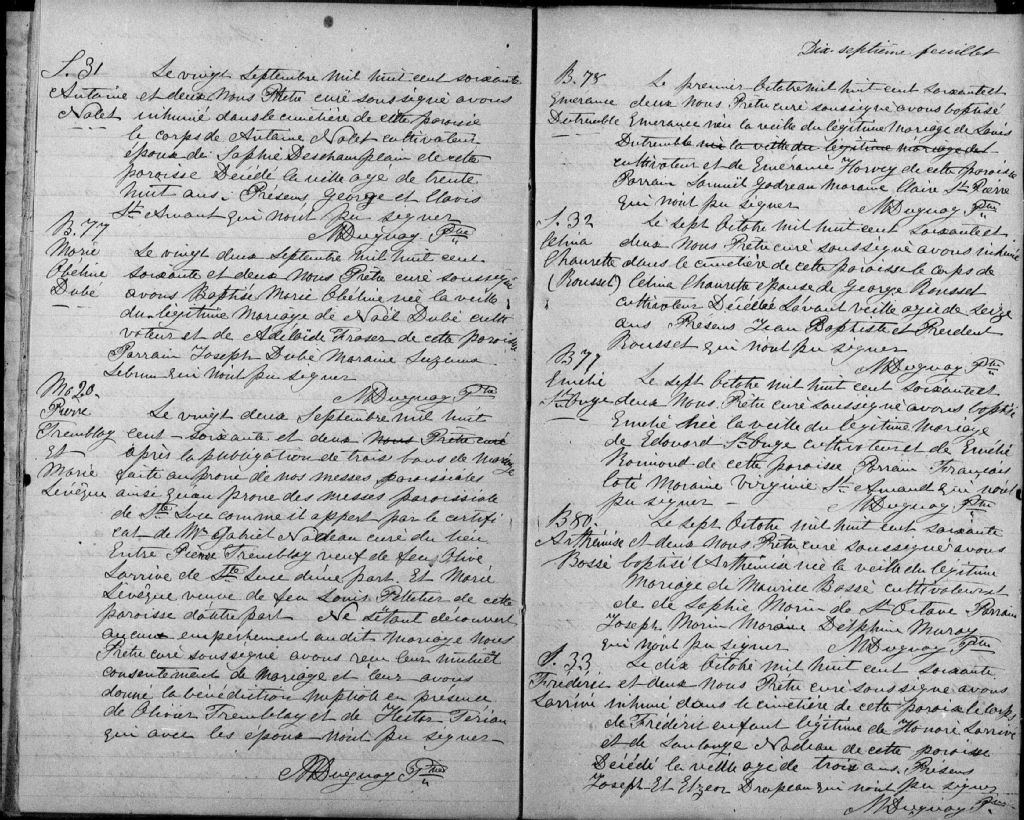 S. 31
Antoine
Nolet
Le vingt Septembre mil huit cent soixante
et deux Nous Prêtre curé soussigné avons
inhumé dans le cimetière de cette paroisse
le corps de Antoine Nolet cultivateur
époux de Sophie Deschamplain de cette
paroisse Décédé la veille age de trente
huit ans. Présens George et Clavis
St Amant qui n'ont pu signer
M Duguay Ptre
B. 77
Marie
Obéline
Dubé
Le vingt deux Septembre mil huit cent
soixante et deux Nous Prêtre curé soussigné
avons Baptisé Marie Obéline née la veille
du légitime Mariage de Noël Dubé culti
vateur et de Adelaïde Fraser de cette paroisse
Parrain Joseph Dubé Maraine Suzanne
Lebrun qui n'ont pu signer
M Duguay Ptre
M. 20.
Pierre
Tremblay
Et
Marie
Levêque
Le vingt deux Septembre mil huit
cent soixante et deux Nous Prêtre curé
après la publication de trois bans de mariage
faite au prone de nos messes paroissiales
ainsi qu'au prone des messes paroissiale
de Ste Luce comme il appert par le certifi
cat de Mr Gabriel Nadeau curé du lieu
Entre Pierre Tremblay veuf de feu Olive
Larrivé de Ste Luce d'une part. Et Marie
Levêque veuve de feu Louis Pelletier de cette
paroisse d'autre part Ne s'étant découvert
aucun empêchement au dit Mariage Nous
Prêtre curé soussigné avons reçu leur mutuel
consentement de mariage et leur avons
donné la bénédiction nuptiale en présence
de Olivier Tremblay et de Hector
qui avec les epoux n'ont pu signer
M Duguay Ptre
Dix septième feuillet
B. 78
Emerance
Dutremble
Le premier Octobre mil huit cent soixante et
deux Nous Prêtre curé soussigné avons baptisé
Emerance née la veille du légitime Mariage de Louis
Dutremble née la veille du légitime mariage de
cultivateur et de Emérance Harvey de cette paroisse
Parrain Samuël Godreau maraine Claire St Pierre
qui n'ont pu signer M Duguay Ptre
S. 32
Celina
Chaurette
(Rousset)
Le sept Octobre mil huit cent soixante et
deux Nous Prêtre curé soussigné avons inhumé
dans le cimetière de cette paroisse le corps de
Celina Chaurette epouse de George Rousset
cultivateur Décédée l'avant veille agée de seize
ans Présens Jean Baptiste et President
Rousset qui n'ont pu signer
M Duguay Ptre
B 77
Emélie
St Onge
Le sept Octobre mil huit cent soixante et
deux Nous Prêtre curé soussigné avons baptisé
Emélie née la veille du légitime Mariage
de Edouard St Onge cultivateur et de Emélie
Raimond de cette paroisse Parrain François
Coté Maraine Virginie St Amand qui n'ont
pu signer M Duguay Ptre
B 80.
Arthémise
Bossé
Le sept Octobre mil huit cent soixante
et deux Nous Prêtre curé soussigné avons
baptisé Arthemise née la veille du légitime
Mariage de Maurice Bossé cultivateur et
de de Sophie Morin de St Octave Parrain
Joseph Morin Maraine Delphine Muray
qui n'ont pu signer M Duguay Ptre
S. 33
Fréderic
Larrivé
Le dix Octobre mil huit cent soixante
et deux Nous Prêtre curé soussigné avons
inhumé dans le cimetière de cette paroisse le corps
de Fréderic enfant légitime de Honoré Larrivé
et de Soulange Nadeau de cette paroisse
Décédé la veille age de trois ans. Présens
Joseph Et Elzear Drapeau qui n'ont pu signer
M Duguay P.